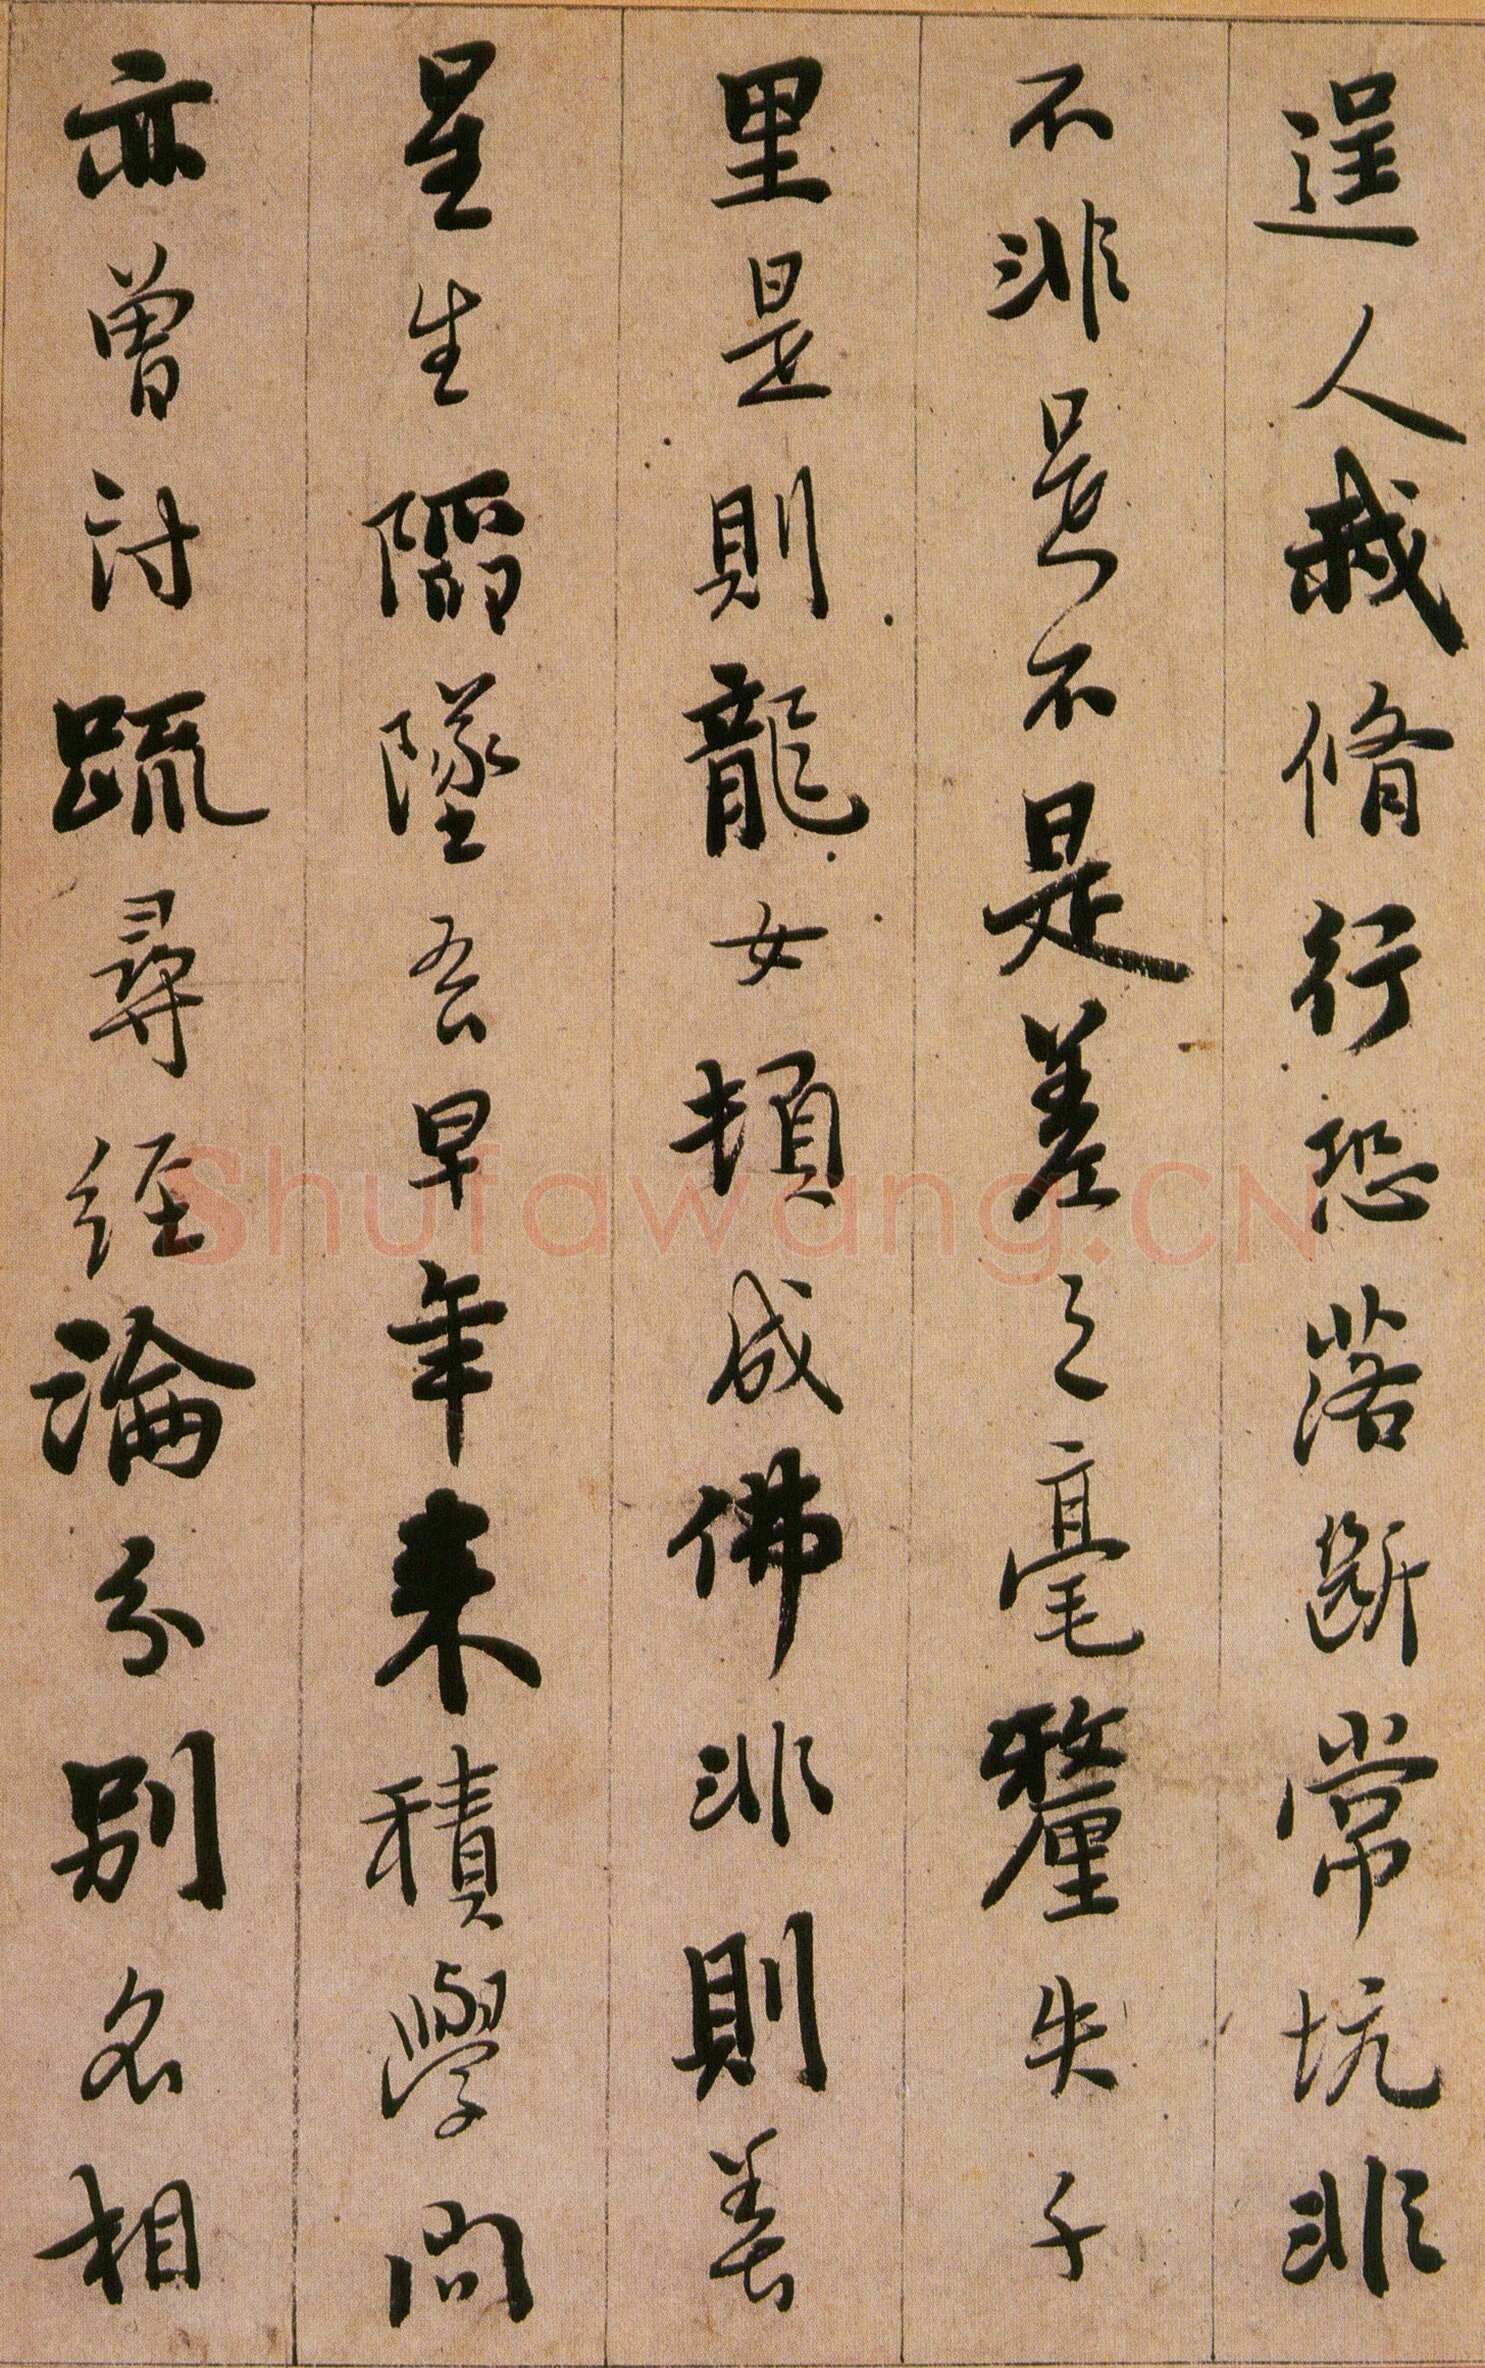 逞人我脩行恐落斷常坑非
不非是不是差之毫釐失千
里是則龍女頓成佛非則善
星生陷墜吾早年来積學問
亦曾討䟽尋経論分別名相
Shufawang.CN